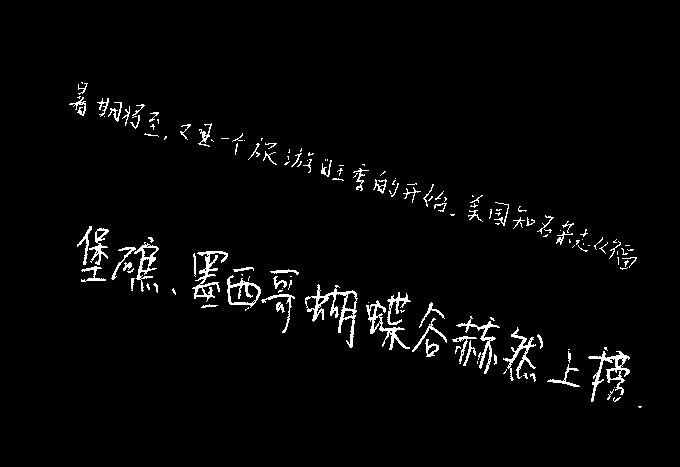 暑期将至,又是一个旅游旺季的开始.美国知名杂志《福
堡礁、墨西哥蝴蝶谷赫然上榜.